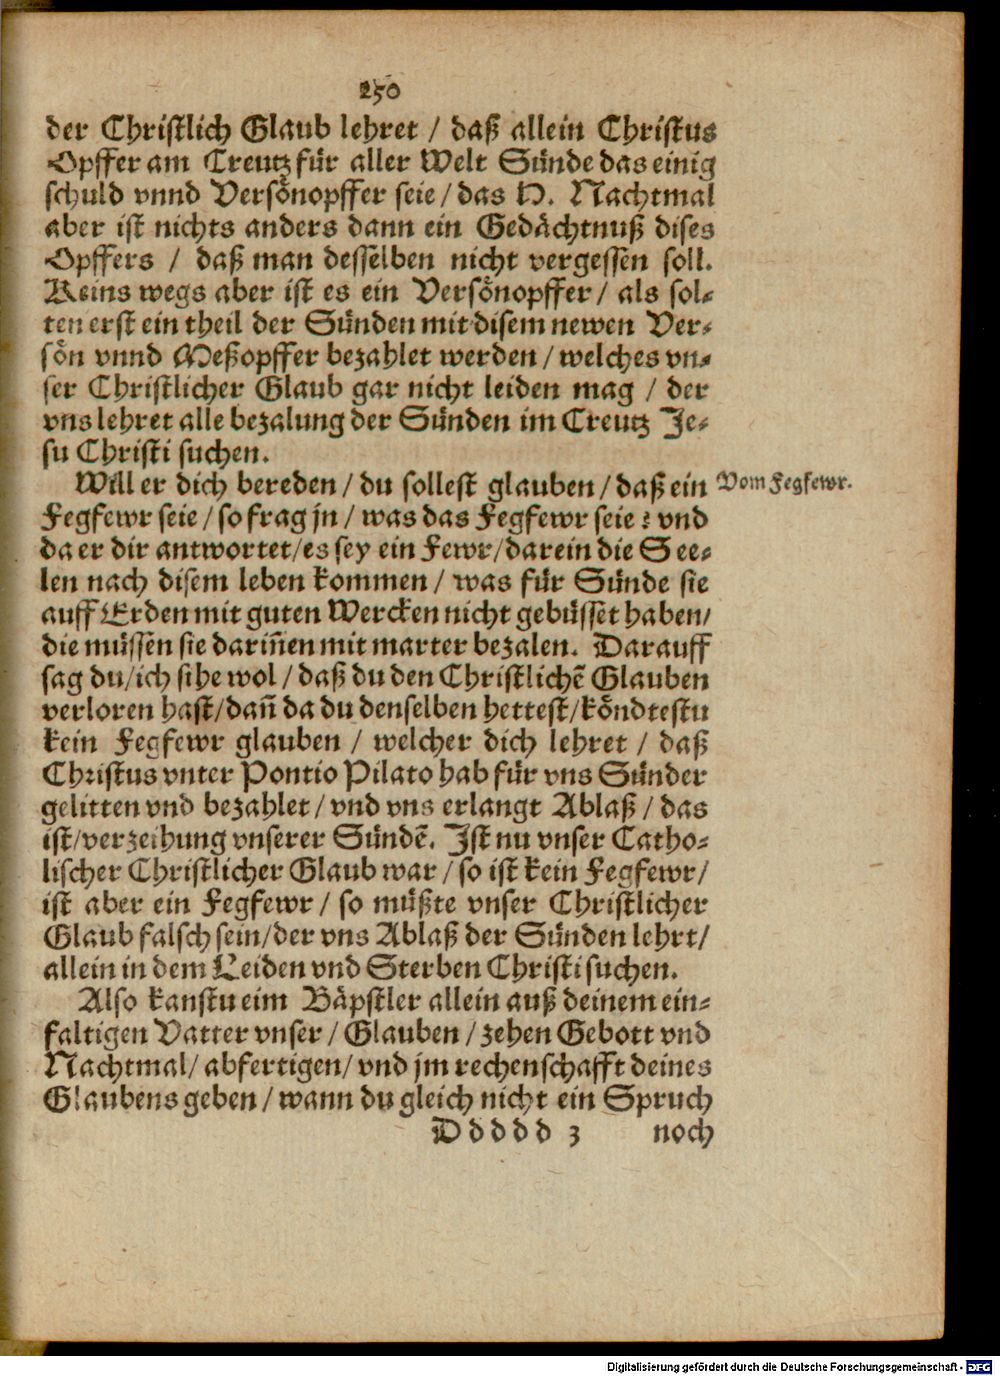 250
der Christlich Glaub lehret / daß allein Christus
Opffer am Creutz für aller Welt Sünde das einig
schuld vnnd Versönopffer seie / das H. Nachtmal
aber ist nichts anders dann ein Gedächtnuß dises
Opffers / daß man desselben nicht vergessen soll.
Keins wegs aber ist es ein Versönopffer / als sol-
ten erst ein theil der Sünden mit disem newen Ver-
sön vnnd Meßopffer bezahlet werden / welches vn-
ser Christlicher Glaub gar nicht leiden mag / der
vns lehret alle bezalung der Sünden im Creutz Je-
su Christi suchen.
Will er dich bereden / du sollest glauben / daß ein
Vom Fegfewr.
Fegfewr seie / so frag jn / was das Fegfewr seie? vnd
da er dir antwortet / es sey ein Fewr / darein die See-
len nach disem leben kommen / was für Sünde sie
auff Erden mit guten Wercken nicht gebüsset haben /
die müssen sie dariñen mit marter bezalen. Darauff
sag du / ich sihe wol / daß du den Christlichẽ Glauben
verloren hast / dañ da du denselben hettest / köndtestu
kein Fegfewr glauben / welcher dich lehret / daß
Christus vnter Pontio Pilato hab für vns Sünder
gelitten vnd bezahlet / vnd vns erlangt Ablaß / das
ist / verzeihung vnserer Sündẽ. Ist nu vnser Catho-
lischer Christlicher Glaub war / so ist kein Fegfewr /
ist aber ein Fegfewr / so müßte vnser Christlicher
Glaub falsch sein / der vns Ablaß der Sünden lehrt /
allein in dem Leiden vnd Sterben Christi suchen.
Also kanstu eim Bäpstler allein auß deinem ein-
faltigen Vatter vnser / Glauben / zehen Gebott vnd
Nachtmal / abfertigen / vnd jm rechenschafft deines
Glaubens geben / wann du gleich nicht ein Spruch
D d d d d 3 noch
Digitalisierung gefördert durch die Deutsche Forschungsgemeinschaft - DFG